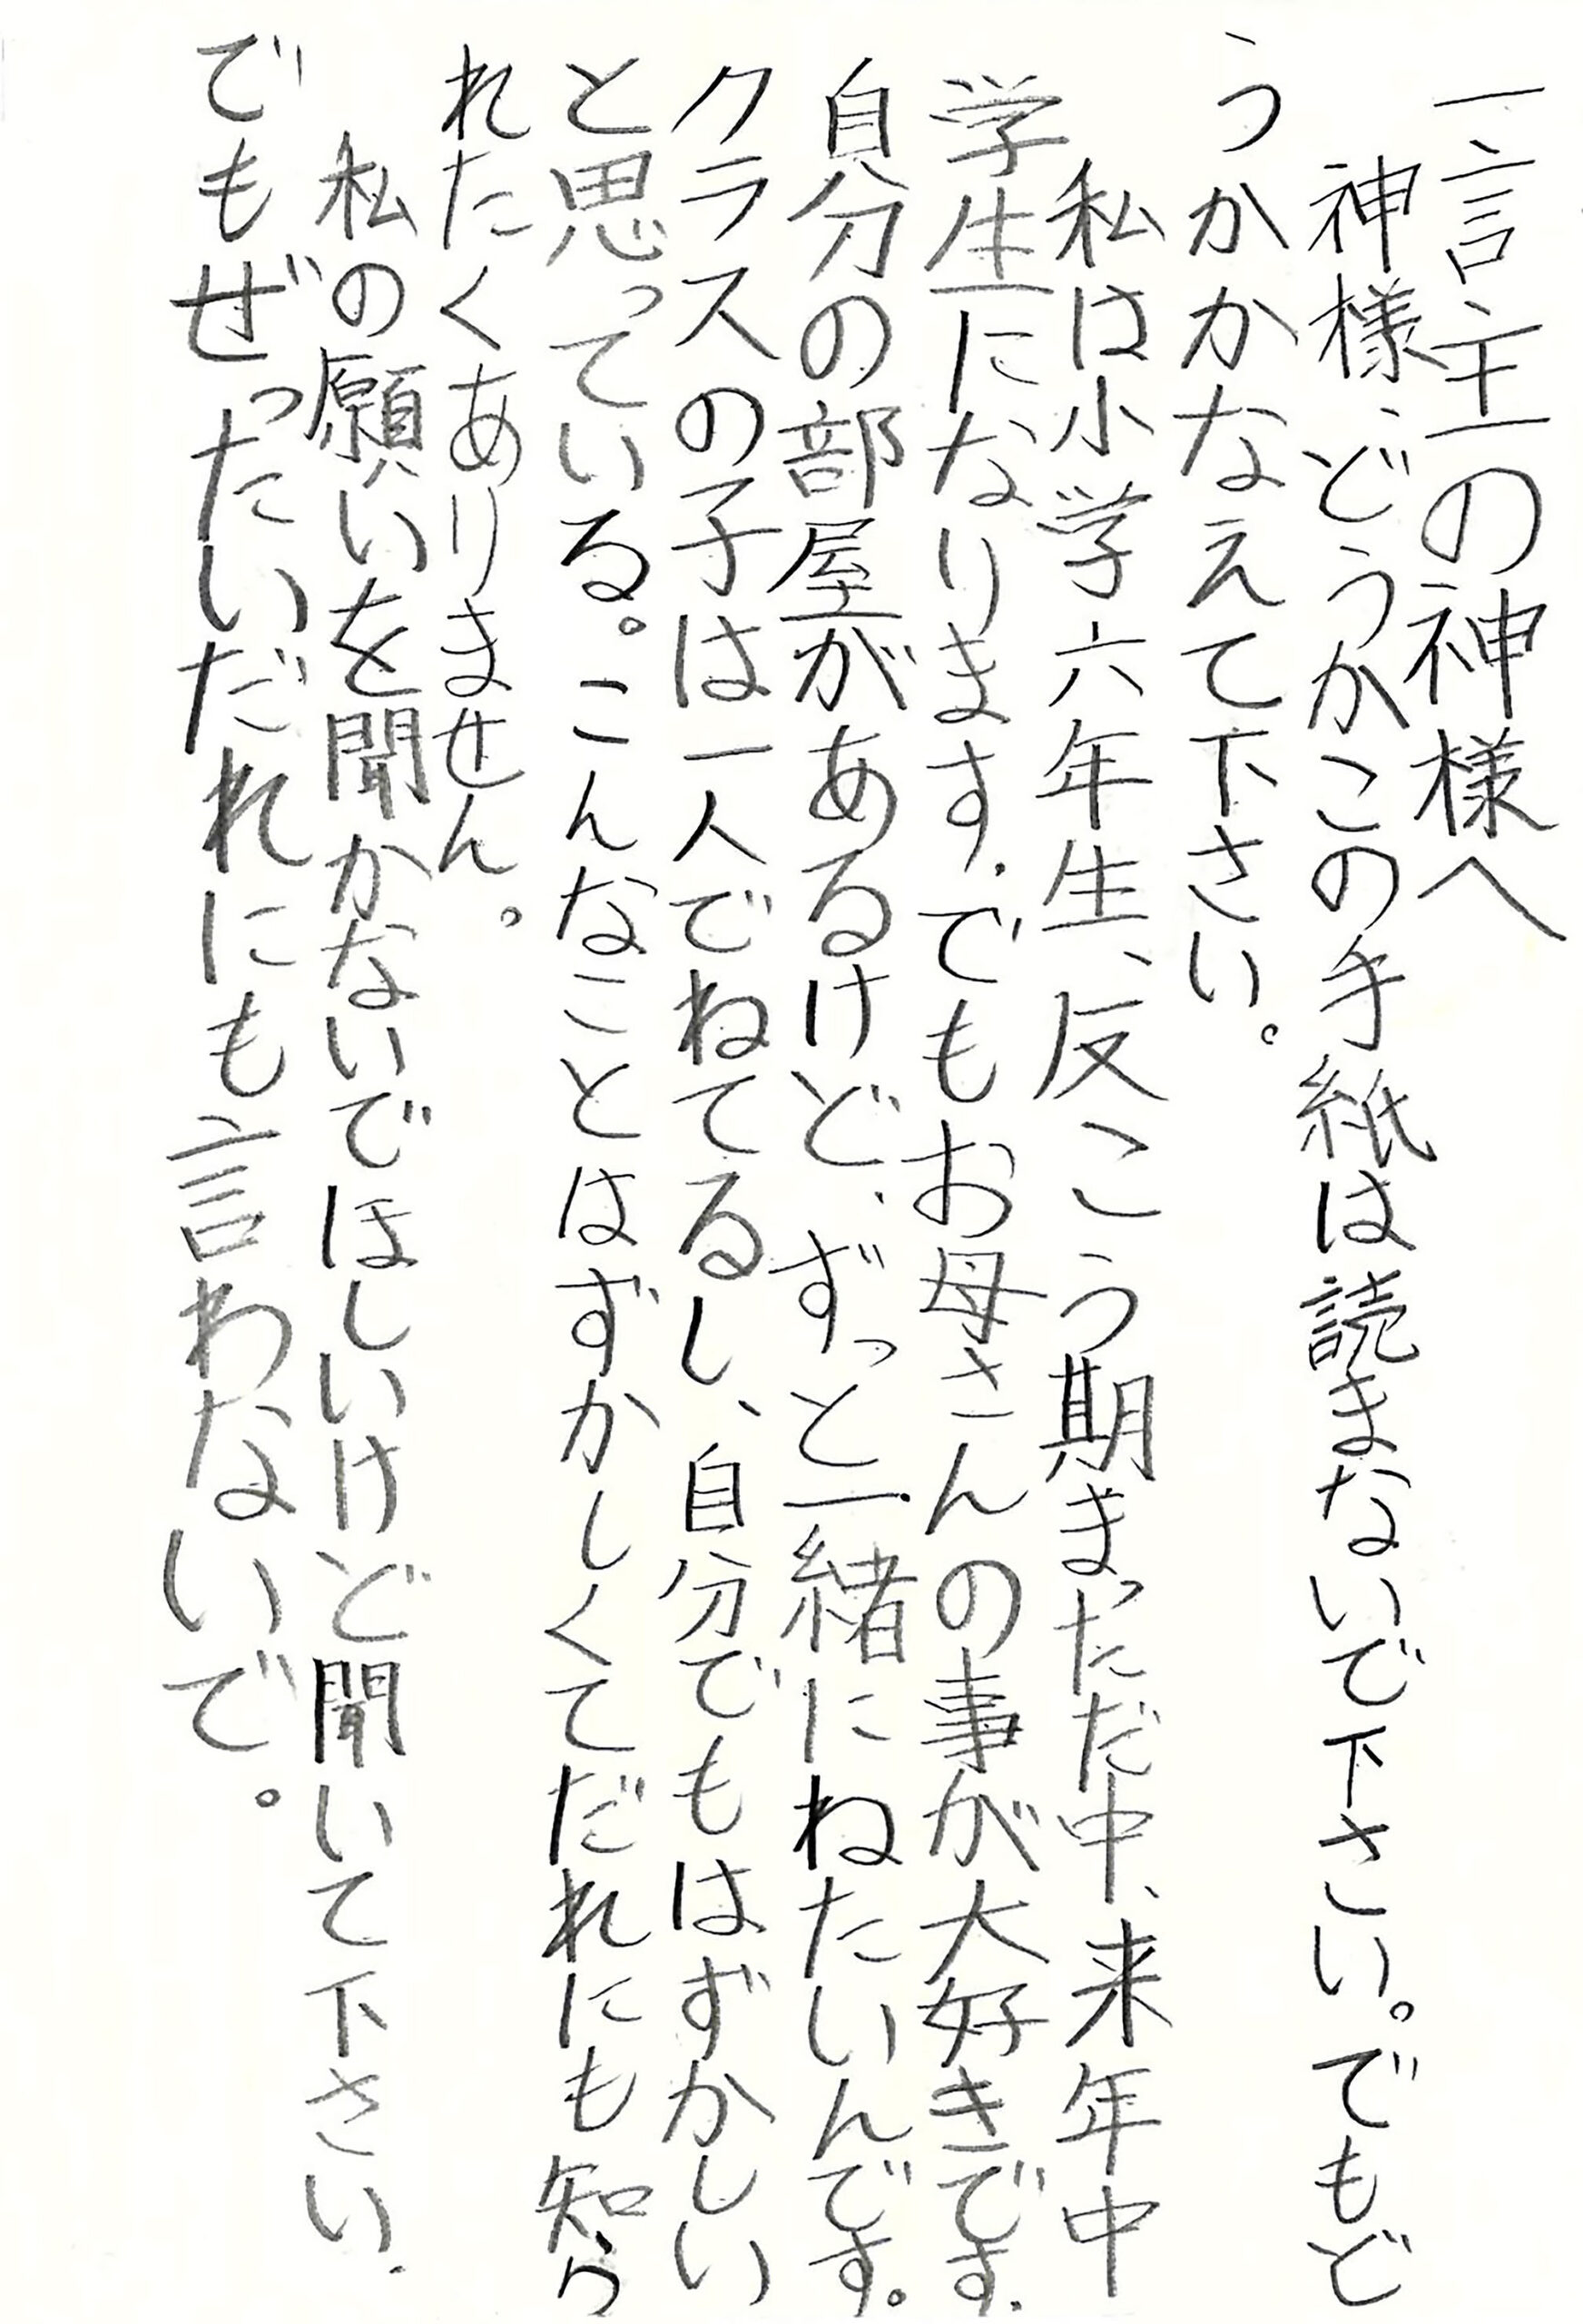 一言主の神様へ
神様、どうかこの手紙は読まないで下さい。でもど
うかかなえて下さい。
私は小学六年生、反こう期まっただ中、来年中
学生になります。でもお母さんの事が大好きです。
自分の部屋があるけど、ずっと一緒にねたいんです。
クラスの子は一人でねてるし、自分でもはずかしい
と思っている。こんなことはずかしくてだれにも知ら
れたくありません。
私の願いを聞かないでほしいけど聞いて下さい。
でもぜったいだれにも言わないで。